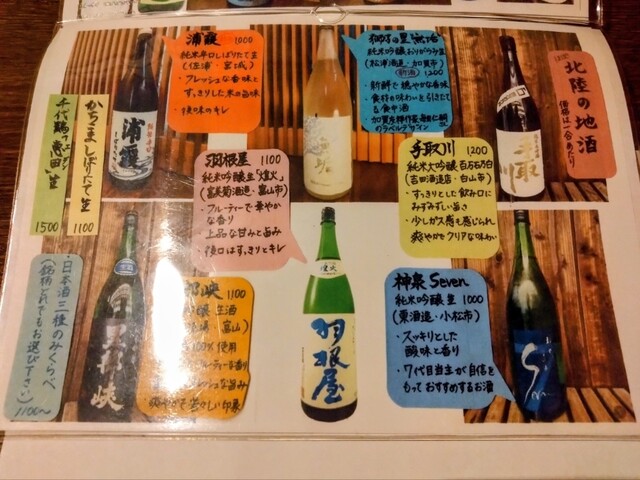 北陸の地酒
価格は一合あたり
浦霞 1000
純米辛口しぼりたて生
(佐浦・宮城)
・フレッシュな香味と
すっきりした米の旨味
・後味のキレ
純米吟醸おりがらみ生
(松浦酒造・加賀市)
新酒 1200
・新鮮で穏やかな香味
・食材の味わいを引きたてる食中酒
のラベルデザイン
手取川 1200
純米大吟醸 百万石乃白
(吉田酒造店・白山市)
・すっきりとした飲み口に
みずみずしい旨さ
・少しガス感も感じられ
爽やかでクリアな味わい
羽根屋 1100
純米吟醸生「煌火」
(富美菊酒造・富山市)
・フルーティーで華やか
な香り
・上品な甘みと旨み
・後口はすっきりとキレ
神泉 Seven
純米吟醸 生 1000
(東酒造・小松市)
・スッキリとした
酸味と香り
・7代目当主が自信を
もっておすすめするお酒
峡 1100
吟醸 生酒
富山)
100%使用
フレッシュな旨み
爽やかで若々しい印象
かちこま しぼりたて生
1100
千代鶴
1500
・日本酒三種のみくらべ
(銘柄どれでもお選び下さい)
1100~
浦霞
手取川
羽根屋
煌火
峡